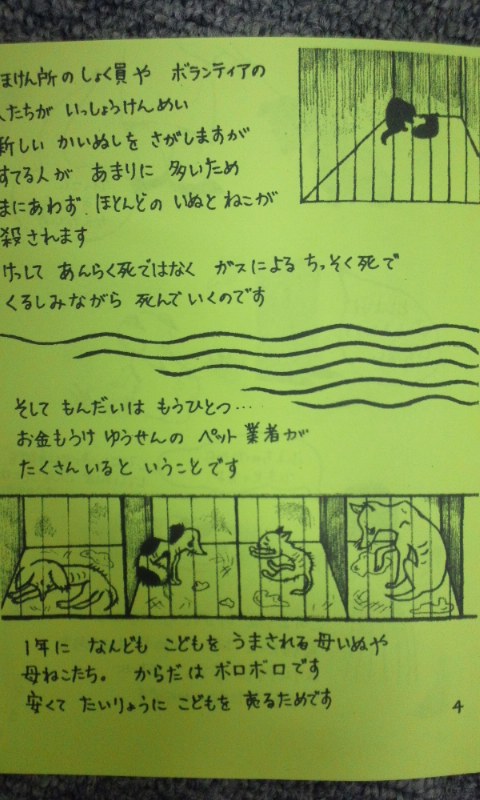 ほけん所のしょく員や ボランティアの
人たちが いっしょうけんめい
新しい かいぬしを さがしますが
すてる人が あまりに 多いため
まにあわず、ほとんどの いぬと ねこが
殺されます
けっして あんらく死ではなく ガスによる ちっそく死で
くるしみながら 死んでいくのです
そして もんだいは もうひとつ…
お金もうけ ゆうせんの ペット業者が
たくさんいると いうことです
1年に なんども こどもを うまされる 母いぬや
母ねこたち。 からだは ボロボロです
安くて たいりょうに こどもを 売るためです
4